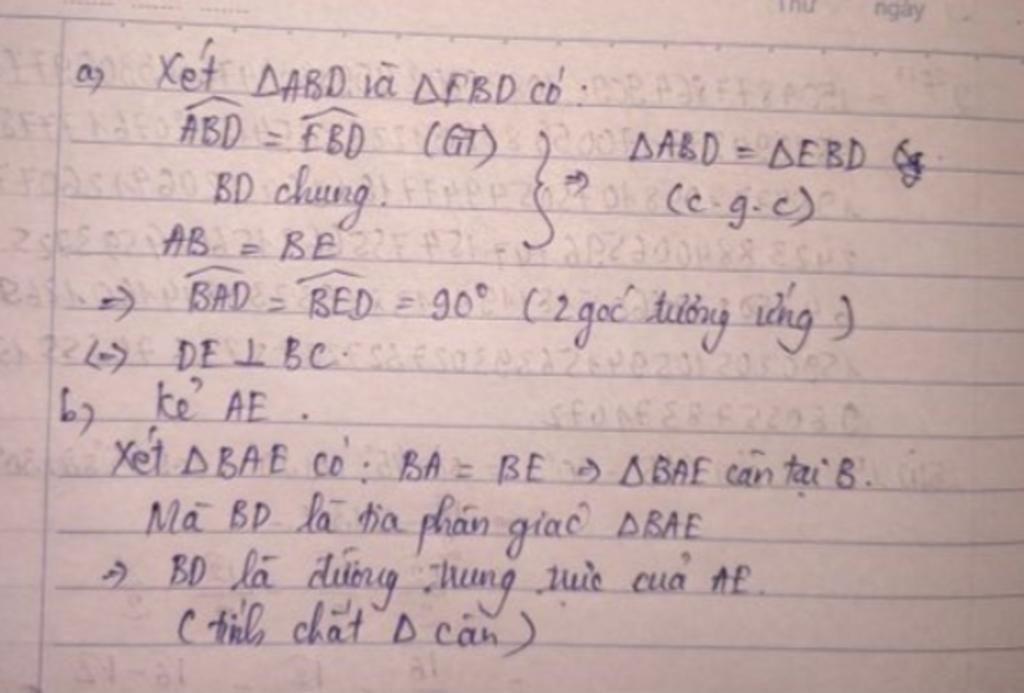 Thứ ngày
a) Xét ΔABD và ΔEBD có:
ABD = EBD (GT)
BD chung. } ⇒ ΔABD = ΔEBD (c.g.c)
AB = BE
⇒ BAD = BED = 90° (2 góc tương ứng)
(⇒) DE ⊥ BC.
b) kẻ AE.
Xét ΔBAE có: BA = BE ⇒ ΔBAE cân tại B.
Mà BD là tia phân giác ΔBAE
⇒ BD là đường trung trực của AE.
(tính chất Δ cân)